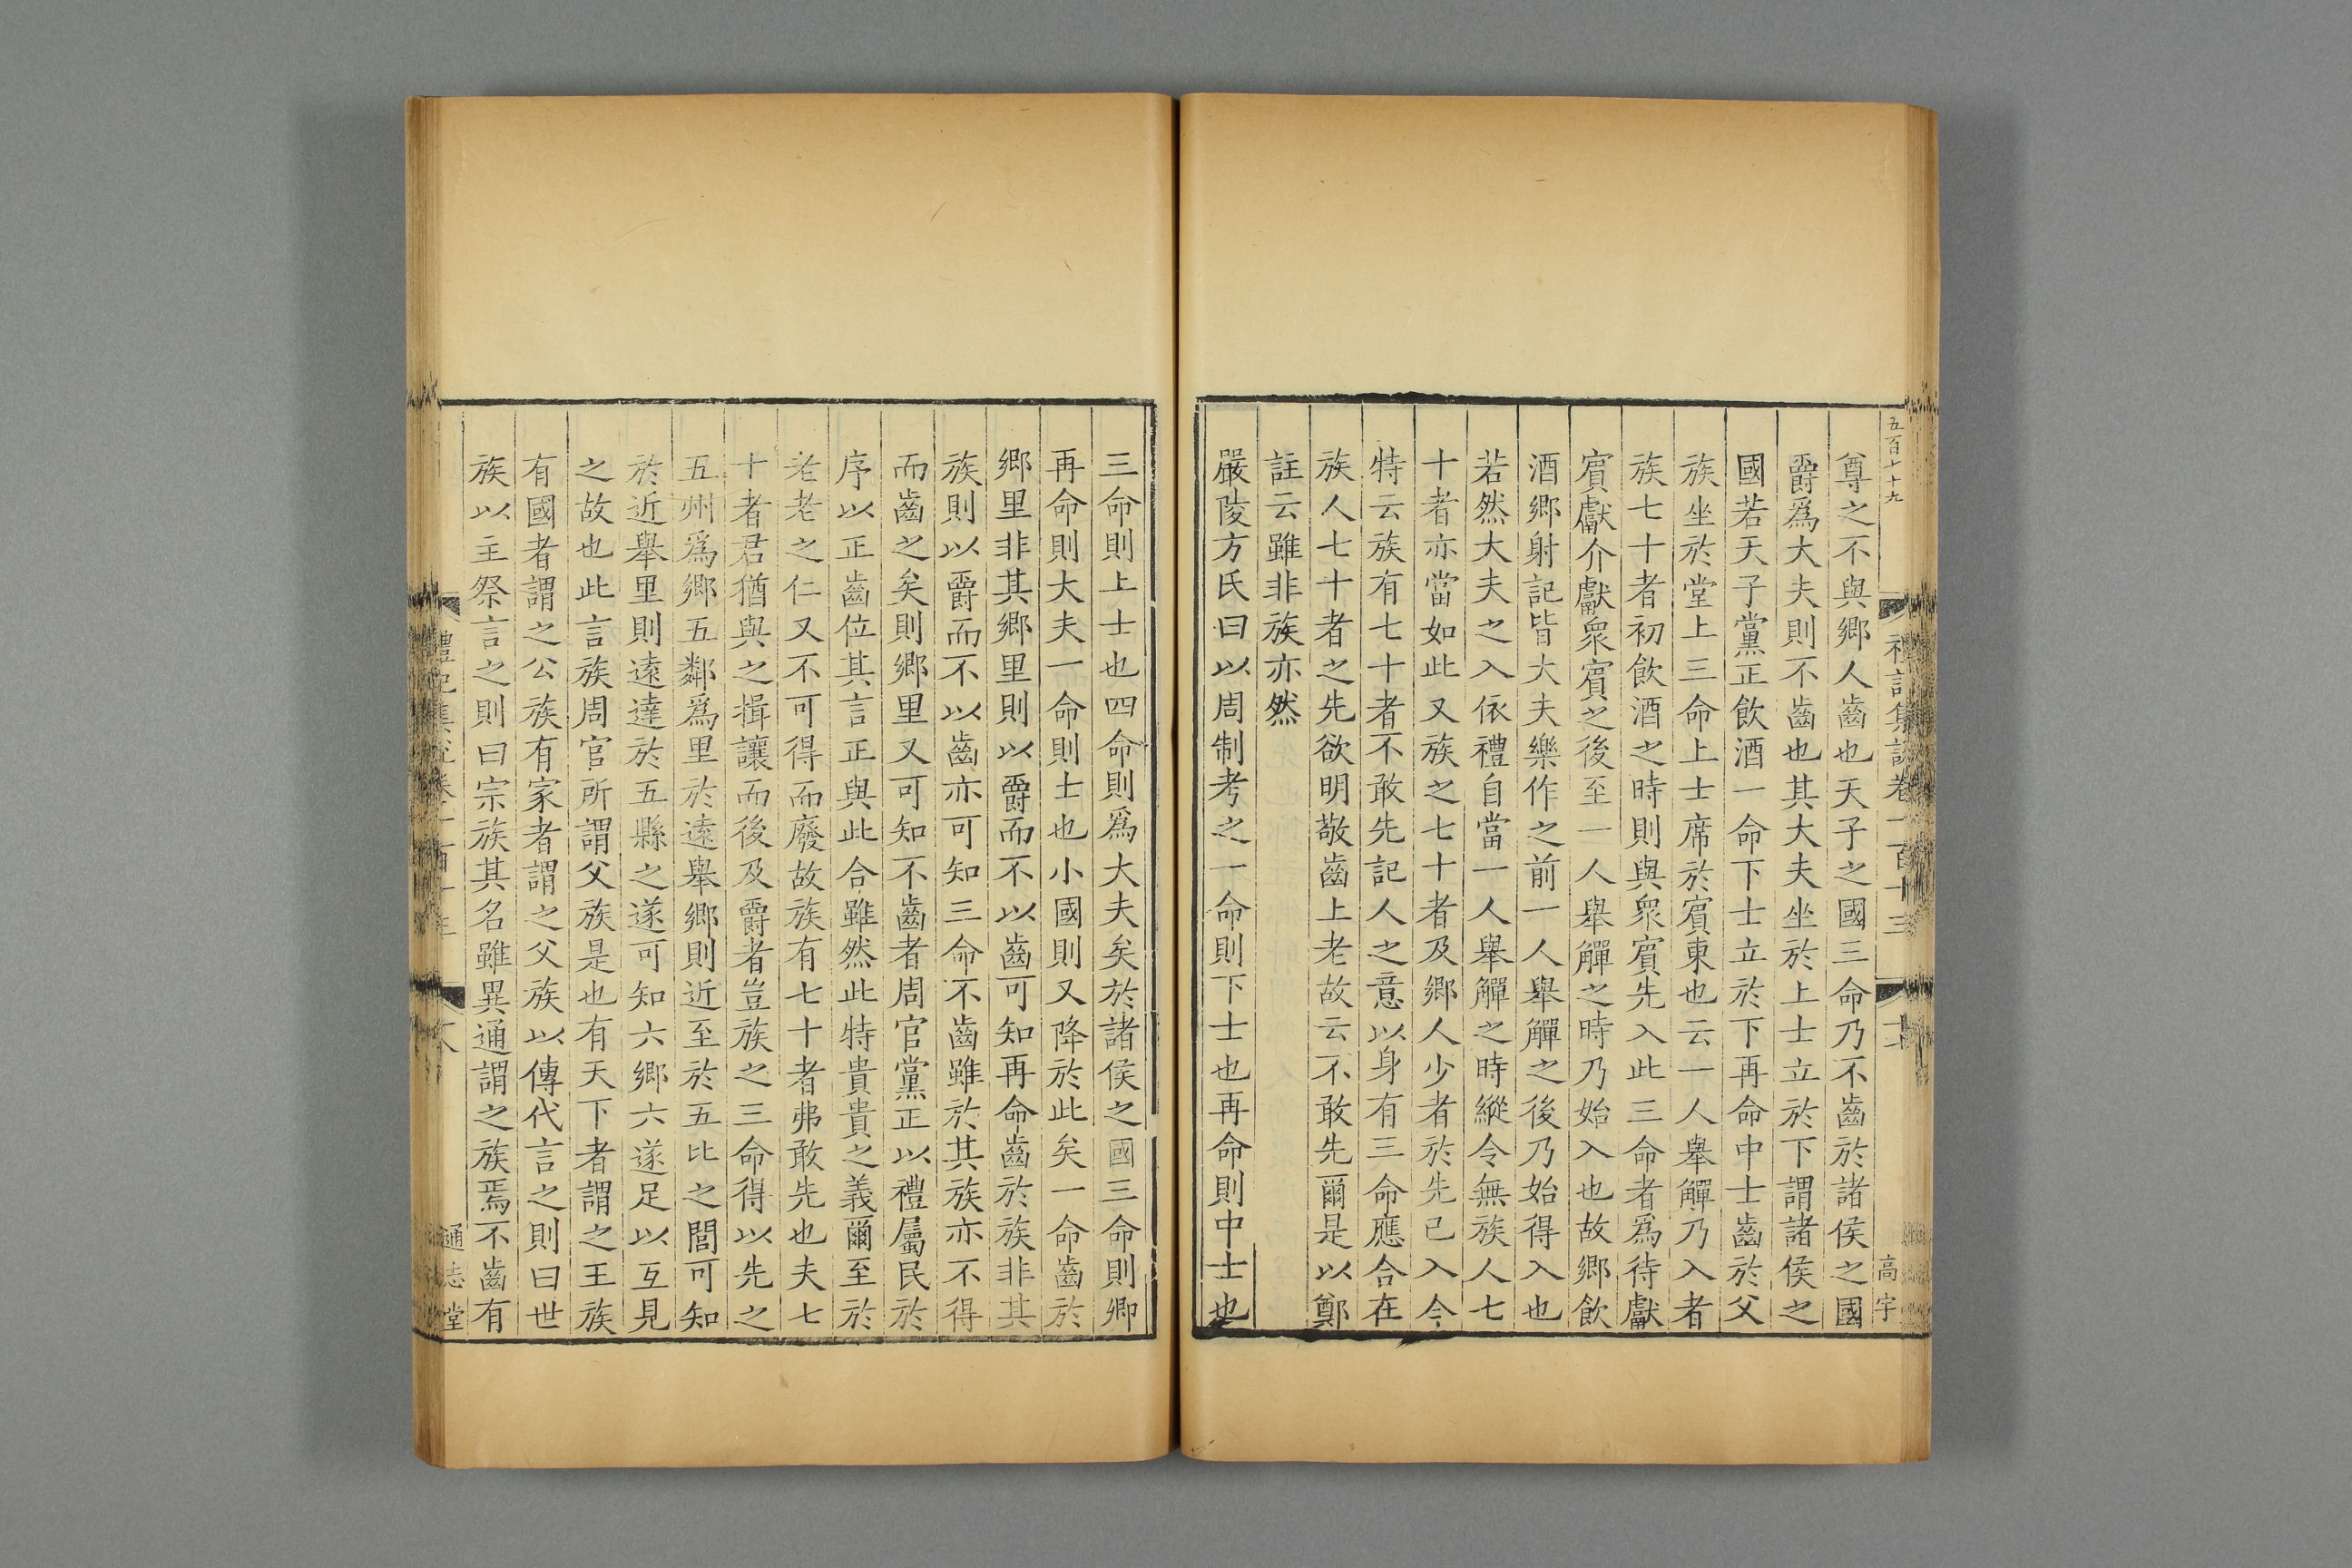 五百十九
禮記集說卷一百十三
高字
尊之不與鄉人齒也天子之國三命乃不齒於諸侯之國
爵爲大夫則不齒也其大夫坐於上士立於下謂諸侯之
國若天子黨正飲酒一命下士立於下再命中士齒於父
族坐於堂上三命上士席於賓東也云一人舉觶乃入者
族七十者初飲酒之時則與衆賓先入此三命者爲待獻
賓獻介獻衆賓之後至一人舉觶之時乃始入也故鄉飲
酒鄉射記皆大夫樂作之前一人舉觶之後乃始得入也
若然大夫之入依禮自當一人舉觶之時縱令無族人七
十者亦當如此又族之七十者及鄉人少者於先已入今
特云族有七十者不敢先記人之意以身有三命應合在
族人七十者之先欲明敬齒上老故云不敢先爾是以鄭
註云雖非族亦然
嚴陵方氏曰以周制考之一命則下士也再命則中士也
三命則上士也四命則爲大夫矣於諸侯之國三命則卿
再命則大夫一命則士也小國則又降於此矣一命齒於
鄉里非其鄉里則以爵而不以齒可知再命齒於族非其
族則以爵而不以齒亦可知三命不齒雖於其族亦不得
而齒之矣則鄉里又可知不齒者周官黨正以禮屬民於
序以正齒位其言正與此合雖然此特貴貴之義爾至於
老老之仁又不可得而廢故族有七十者弗敢先也夫七
十者君猶與之揖讓而後及爵者豈族之三命得以先之
五州爲鄉五鄰爲里於遠舉鄉則近至於五比之閭可知
於近舉里則遠達於五縣之遂可知六鄉六遂足以互見
之故也此言族周官所謂父族是也有天下者謂之王族
有國者謂之公族有家者謂之父族以傳代言之則曰世
族以主祭言之則曰宗族其名雖異通謂之族焉不齒有
通志堂